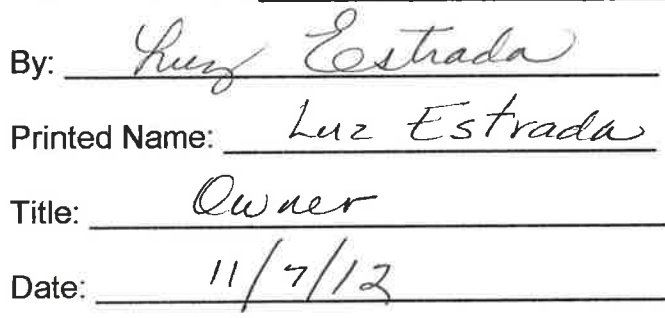 By: Luz Estrada
Printed Name: Luz Estrada
Title: Owner
Date: 11/7/12